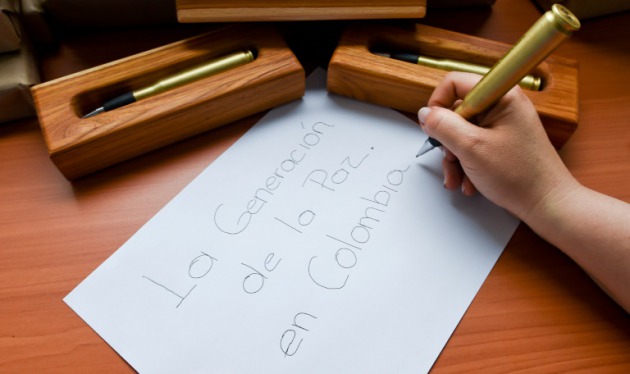 La Generación
de la Paz.
en Colombia